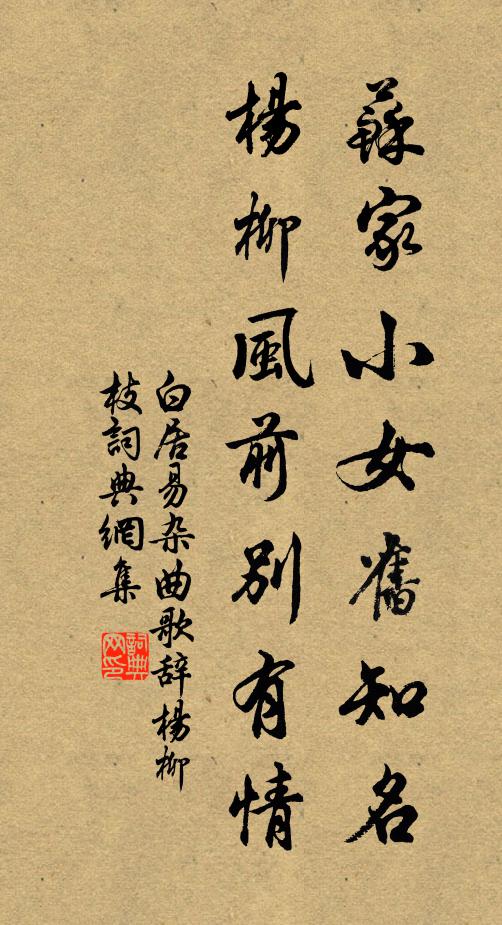 蘇家小女舊知名
楊柳風前別有情
白居易杂曲歌辞楊柳
枝詞典網集
詞典
网印